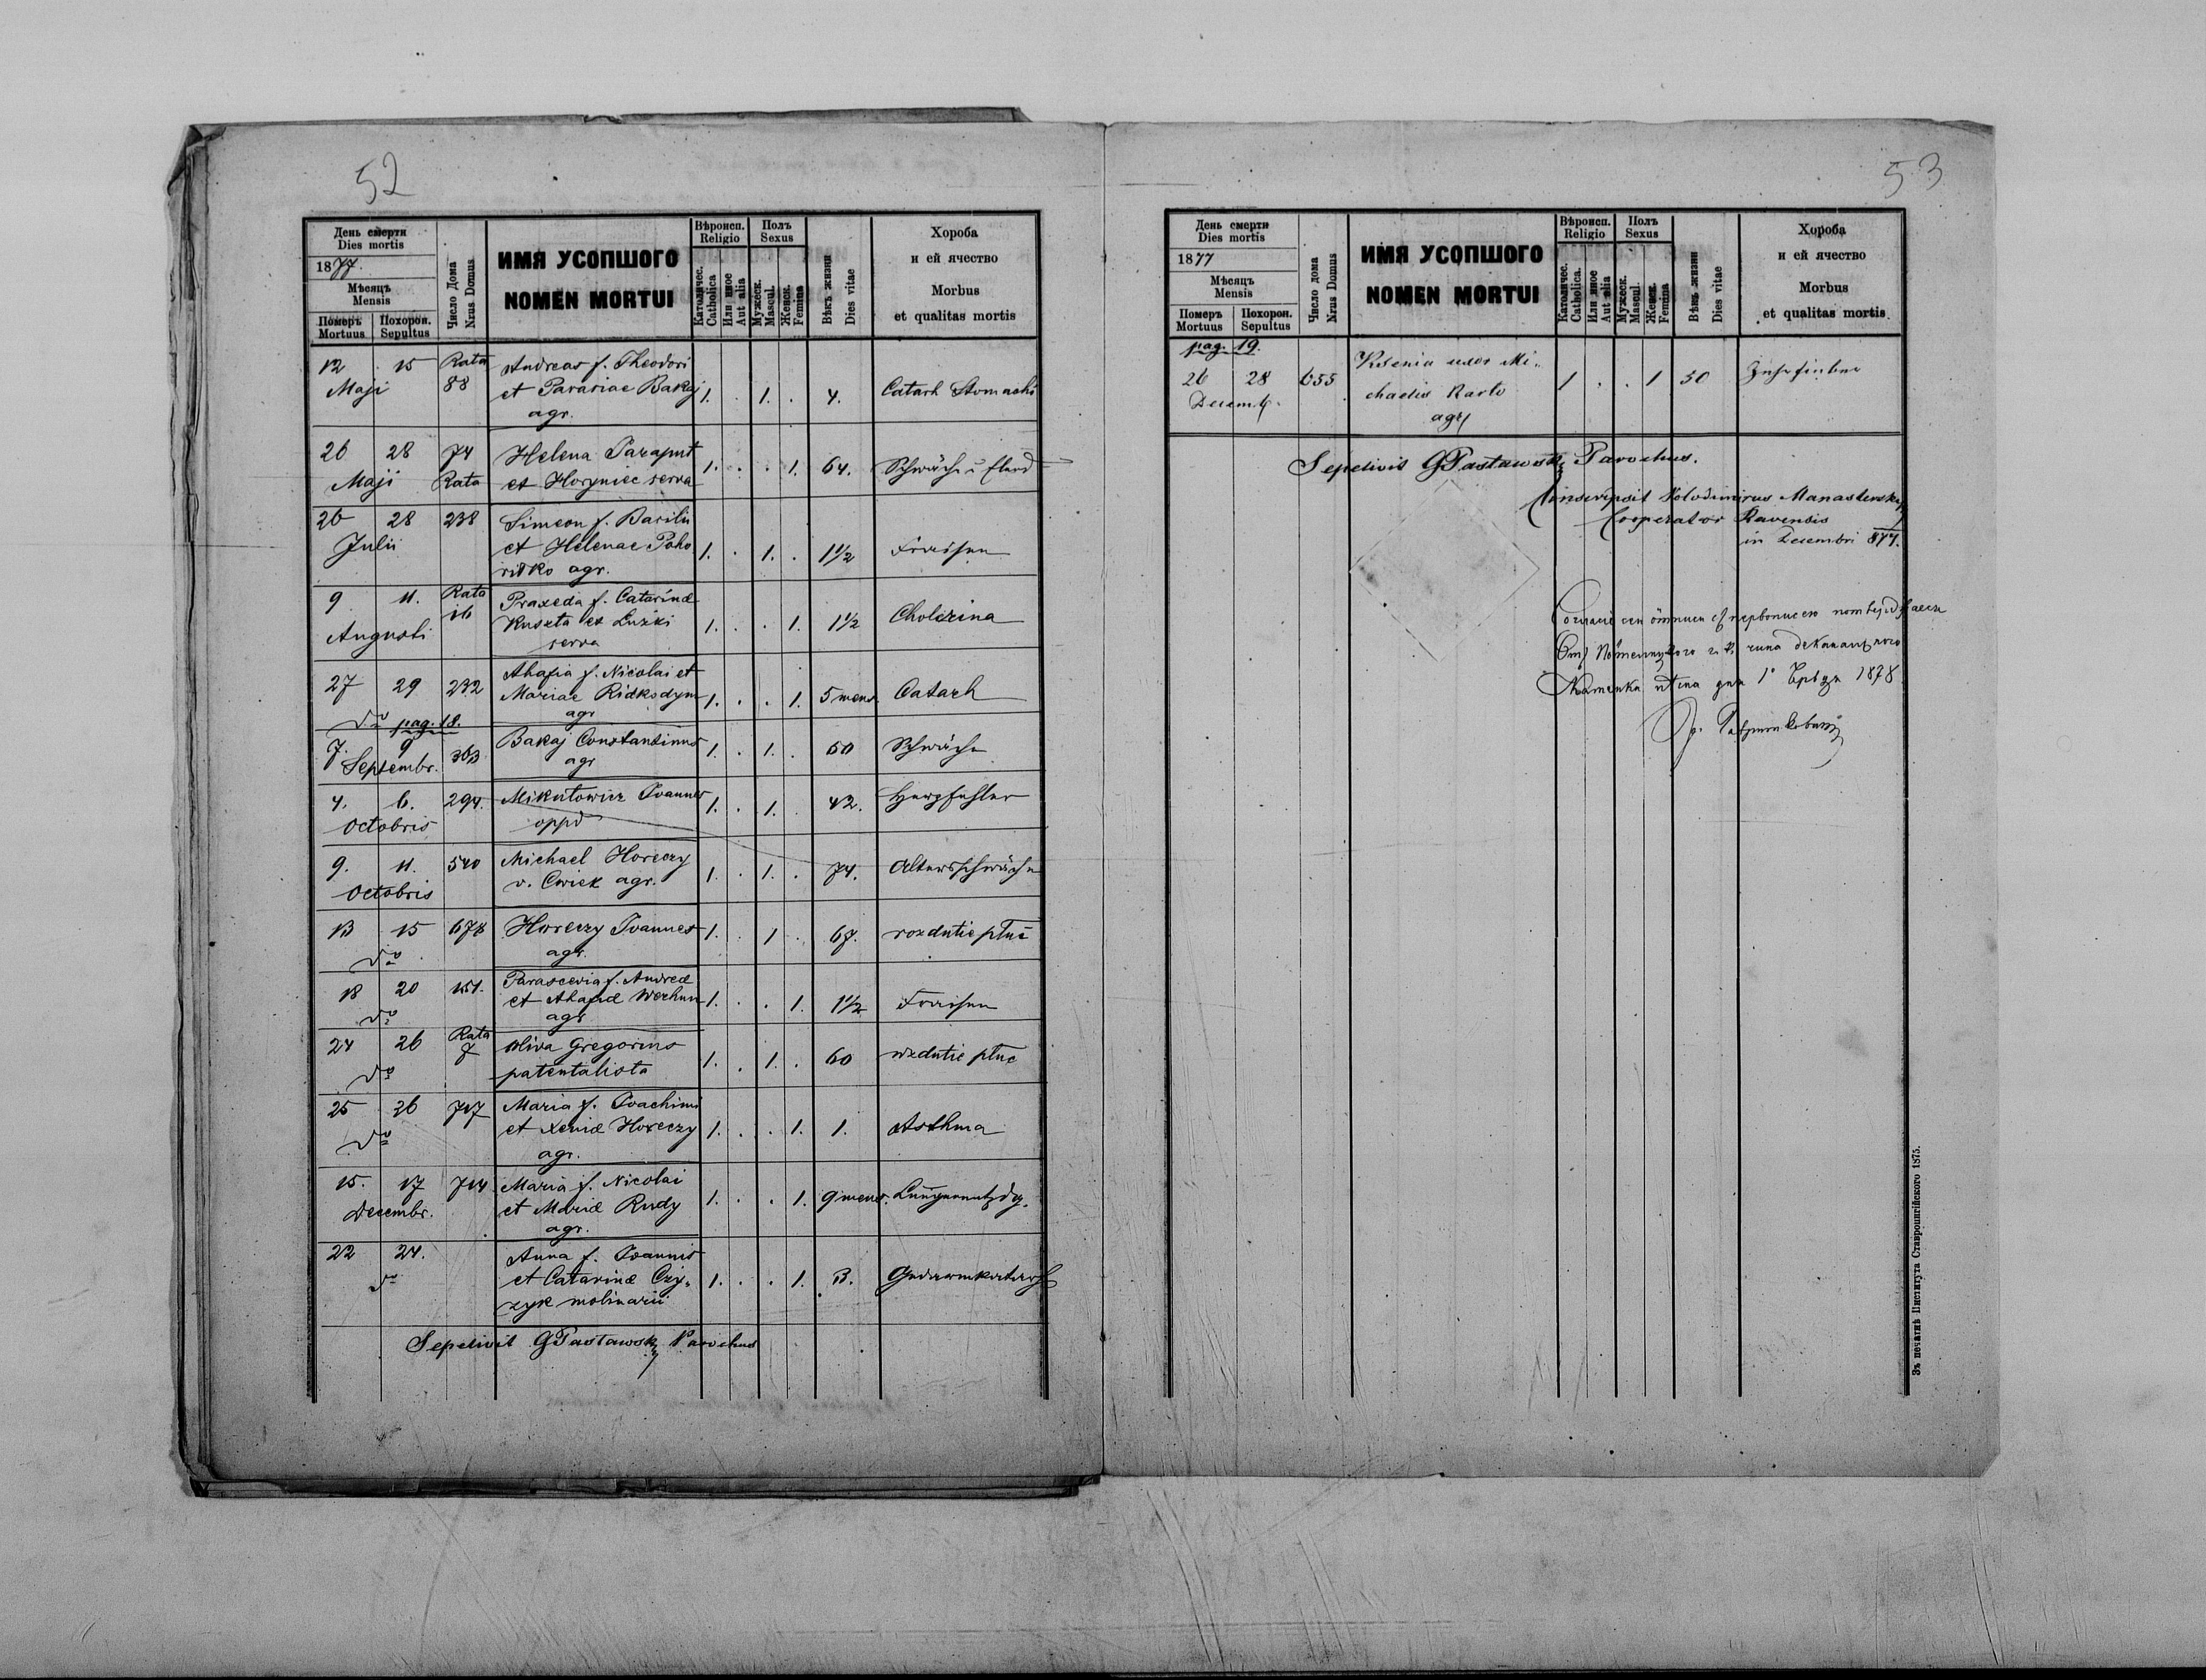 52
День смерти
Dies mortis
1877.
Мѣсяць
Mensis
Померъ Mortuus
Похорон. Sepultus
Число Дома
Nrus Domus
ИМЯ УСОПШОГО
NOMEN MORTUI
Вѣроисп.
Religio
Католичес.
Catholica
Или иное
Aut alia
Полъ
Sexus
Мужеск.
Mascul.
Женск.
Femina
Вѣкъ жизни
Dies vitae
Хороба
и ей ячество
Morbus
et qualitas mortis
12 15 Rata Andreas f. Theodori
Maji 88 et Parasiae Bakaj 1. . 1. . 4. Catarh Stomachi
agr.
26 28 74 Helena Paraput
Maji Rata et Horyniec serva 1. . . 1. 64. Schwäche
26 28 238 Simeon f. Basilii
Julii et Helenae Poho 1. . 1. . 1½ Fraisen
ritko agr.
9 11. Rata Praxeda f. Catarinæ
Augusti 16 Kuszta ex Luzki 1. . . 1. 1½ Cholerina
serva
27 29 232 Ahafia f. Nicolai et
Mariae Ridkodym 1. . . 1. 5 mens. Catarh
dto pag. 18. agr
7. 9 363 Bakaj Constantinus 1. . 1. . 50 Schwäche
Septembr. agr
4. 6. 294. Mikutowicz Ioannes 1. . 1. . 42. Herzfehler
Octobris oppid
9. 11. 540 Michael Horeczy 1. . 1. . 74. Altersschwäche
Octobris v. Cwiek agr.
13 15 678 Horeczy Ioannes 1. . 1 . 67. rozdutie płuc
dto agr.
18 20 151. Parascevia f. Andreæ
dto et Ahafiæ Werhun 1. . . 1. 1½ Fraisen
agr
24 26 Rata 7 Oliva Gregorius 1. . 1. . 60 wzdutie płuc
dto patentalista
25 26 717 Maria f. Ioachimi
dto et Xeniæ Horeczy 1. . . 1. 1. Asthma
agr.
15. 17 714 Maria f. Nicolai
Decembr. et Mariæ Rudy 1. . . 1. 9 mens. Lungenentzdg.
agr.
22 24. Anna f. Ioannis
dto et Catarinæ Czy- 1. . . 1. 3. Gedarmkatarh
zyk molinarii
Sepelivit GPastawsky Parochus
53
День смерти
Dies mortis
1877
Мѣсяць
Mensis
Померъ Mortuus
Похорон. Sepultus
Число дома
Nrus Domus
ИМЯ УСОПШОГО
NOMEN MORTUI
Вѣроисп.
Religio
Католичес.
Catholica.
Или иное
Aut alia
Полъ
Sexus
Мужеск.
Mascul.
Женск.
Femina
Вѣкъ жизни
Dies vitae
Хороба
и ей ячество
Morbus
et qualitas mortis
pag. 19.
26 28 655 Ksenia uxor Mi-
Decemb. chaelis Karto 1 . . 1 50 Zehrfieber
agr
Sepelivit GPastawsky Parochus.
Conscripsit Volodimirus Manastersky
Cooperator Ravensis
in Decembri 877.
1878
Зъ печатнѣ Института Ставропигійского 1875.